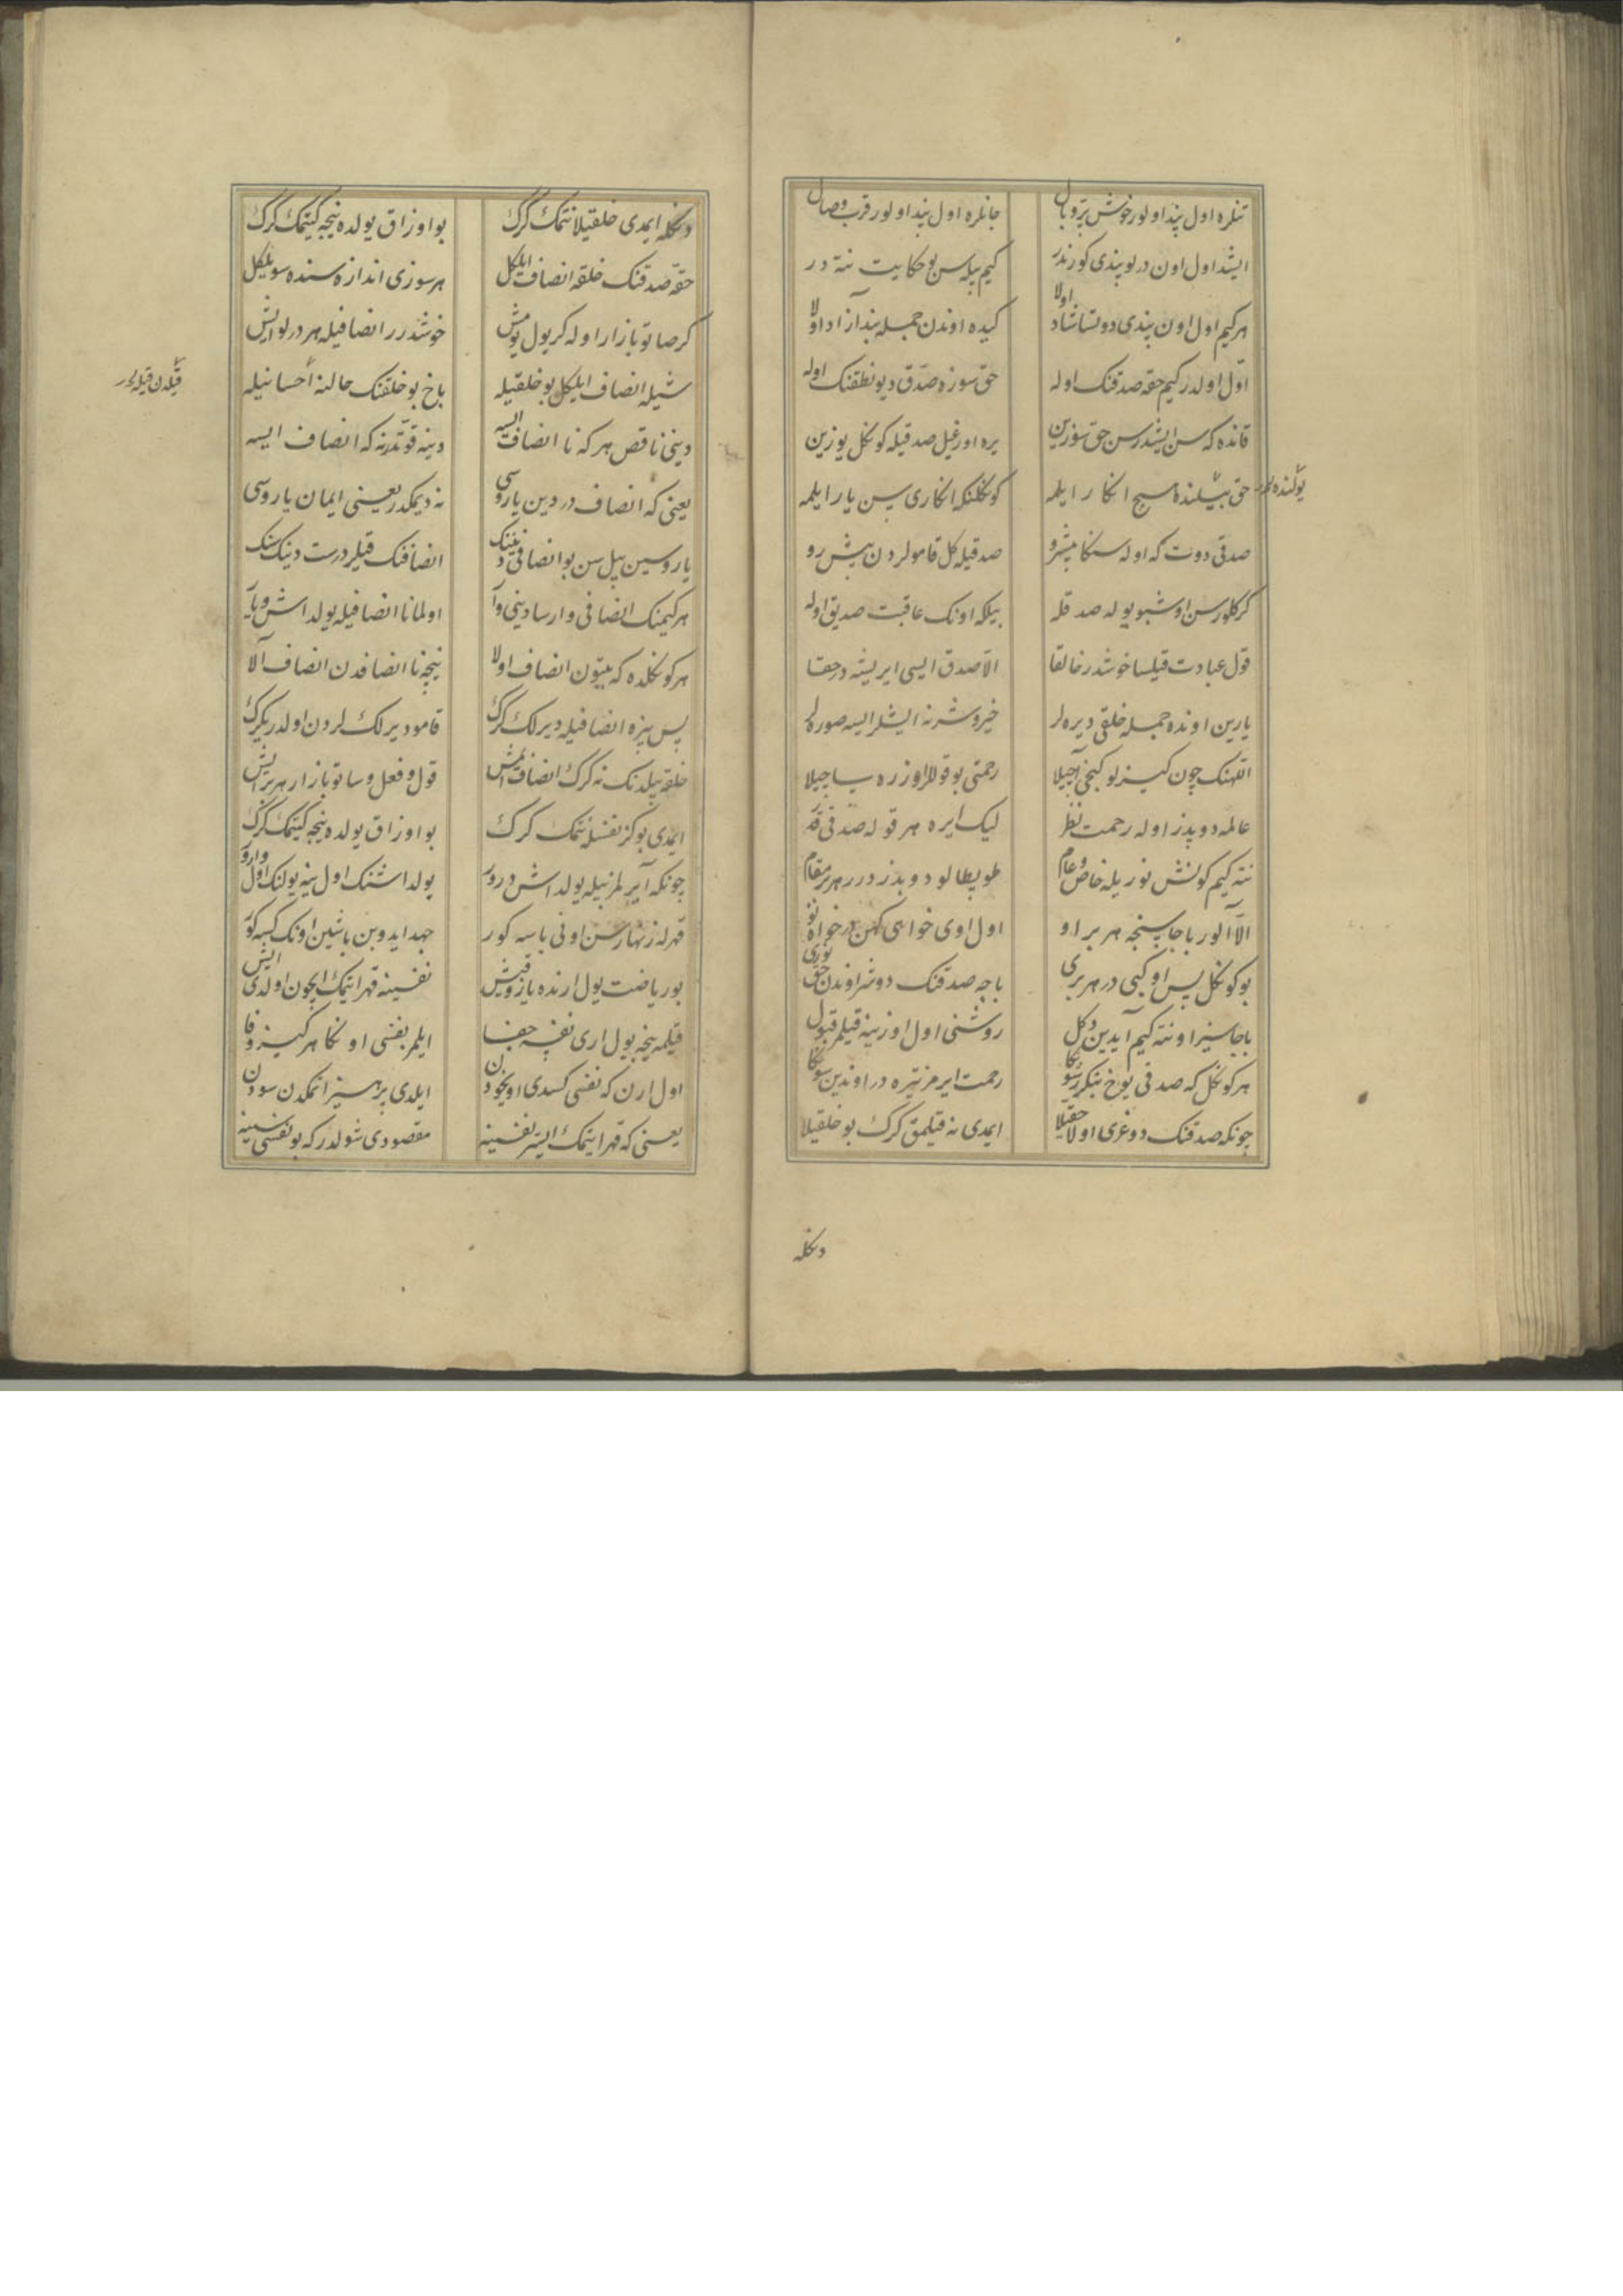 تنلره اول پند اولور خوش پرّ و بال جانلره اول پند اولور قرب وصال
ایشد اول اون درلو پندی کورنذر کیم بیله سن بو حکایت نته در
هر کیم اول اون پندی دوتسا شاد اولا کیده اوندن جمله بند آزاد اولا
اوّل اولدر کیم حقه صدقنک اوله حق سوزه صدّق دیو نطقنک اوله
قانده که سن ایشدرسن حق سوزین یره اورغیل صدقیله کوکل یوزین
حق بیشلنده هیچ انکار ایلمه کوکلنکه انکاری سن یار ایلمه
یولنده
صدقی دوت که اوله سنکا پیشرو صدقیله کل قامولردن پیش رو
کر کلورسن اوشبو یوله صدقله بیلکه اونک عاقبت صدیق اوله
قول عبادت قیلسا خوشدر خالقا الّا صدق ایسی ایریشه در حقا
یارین اونده جمله خلقی دیره لر خیر و شر نه ایشلر ایسه صوره لر
اللهنک چون کیزلو کنجی آچیلا رحمتی بو قوللر اوزره ساچیلا
عالمه دوپدز اوله رحمت نظر لیک ایره هر قوله صدقی قدر
نته کیم کونش نوریله خاص و عام طوپطالو دوپدز درر هر بر مقام
الّا آلور باجاسنجه هر بر او اول اوی خواهی کهن در خواه نو
بو کوکل پس او کبی در هر بری باجه صدقنک دوشر اوندن حق نوری
باجاسیز او نته کیم آیدین دکل روشنی اول اوزینه قیلمز قبول
هر کوکل که صدقی یوخ تنکری سوکا رحمت ایرمز تیره در اوندین سوکا
چونکه صدقنک دوغری اولا حقیلا ایمدی نه قیلمق کرک بو خلقیلا
دکله
دکله ایمدی خلقیلا نتمک کرک بو اوزاق یولده نیجه کیتمک کرک
حقه صدقنک خلقه انصاف ایلکل هر سوزی اندازه سنده سویلکل
کر صاتو بازار اوله کر یول یومش خوشدرر انصافیله هر درلو ایش
شیله انصاف ایلکل بو خلقیله باخ بو خلقنک حالنه احسانیله
قیلدن قیله
دینی ناقص هر که نا انصاف ایسه دینه قوّتدرنه که انصاف ایسه
یعنی که انصاف در دین یاروسی نه دیمکدر یعنی ایمان یاروسی
یاروسین بیل سن بو انصافی دینک انصافنک قیلر درست دینک سنک
هر کیمنک انصافی وارسا دینی وار اولمانا انصافیله یولداش و یار
هر کوکلده که بیتون انصاف اولا نیچه نا انصافدن انصاف آلا
پس بیزه انصافیله دیرلک کرک قامو دیرلک لردن اولدر یکرک
خلقه بیلدنک نه کرک انصاف ایمش قول و فعل و ساتو بازار هر بر ایش
ایمدی بو کز نفسله نتمک کرک بو اوزاق یولده نیجه کیتمک کرک
چونکه آیرلمز بیله یولداش درور یولداشنک اول نیه یولنک اول وارو
قهرله زنهار سن اونی باسه کور جهد ایدوبن باشین اونک کسه کور
بو ریاضت یول ارنده یاز و قیش نفسینه قهر ایتمک ایچون اولدی ایش
قیلمینجه یول اری نفسه جفا ایلمز نفسی اوکا هر کیز وفا
اول ارن که نفسی کسدی اویخودن ایلدی پرهیز اتمکدن سودن
یعنی که قهر ایتمک ایستر نفسینه مقصودی شولدر که بو نفسی سینه